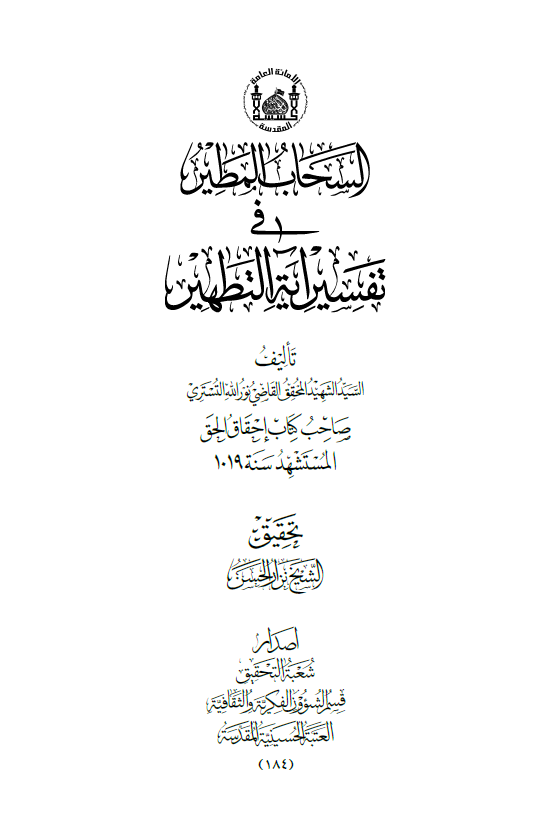 الأمانة العامة
المقدسة
السَحَابُ المَطِيْرُ
في
تَفْسِيْرِ آيَةِ التَطْهِيْرِ
تَأليْفُ
السَّيِّدُ الشَّهِيْدُ المُحَقِّقُ القَاضِيْ نُوْرُ اللهِ التُّسْتَرِي
صَاحِبُ كِتَابِ إِحْقَاقُ الحَق
المُسْتَشْهِدُ سَنَة ١٠١٩
تَحْقِيْق
الشَّيْخ نِزَار الحَسَن
اصدَار
شُعْبَةُ التَحْقِيْق
قِسْمُ الشُؤُوْنِ الفِكْرِيَّة وَالثَّقَافِيَّة
العَتَبَة الحُسَيْنِيَة المُقَدَّسَة
(١٨٤)